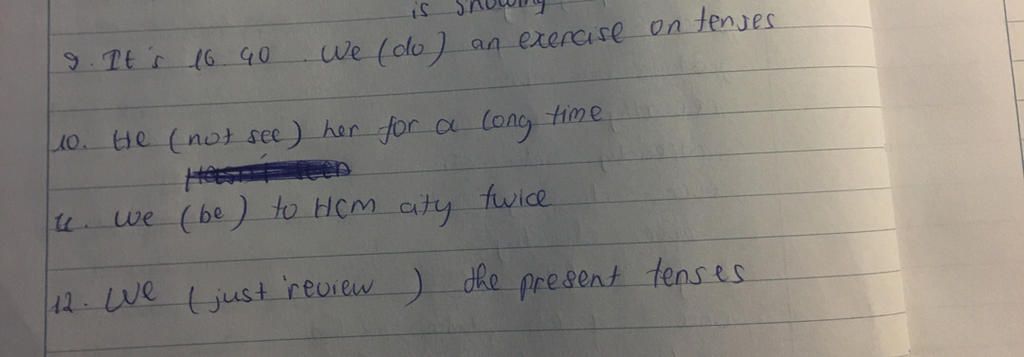 is showing
9. It's 16.40. We (do) an exercise on tenses
10. He (not see) her for a long time
11. We (be) to HCM city twice
12. We (just review) the present tenses